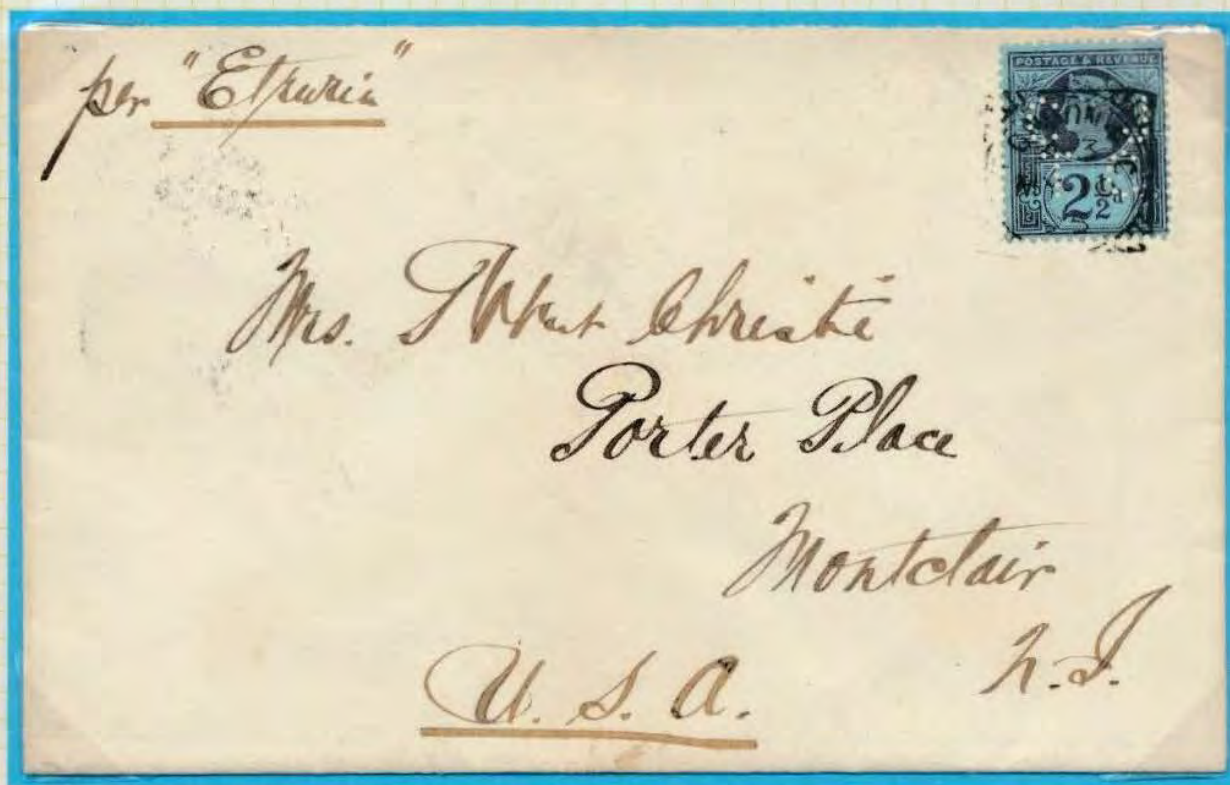 per "Etruria"
POSTAGE & REVENUE
2½d
Mrs. Christie
Porter Place
Montclair
N.J.
U.S.A.